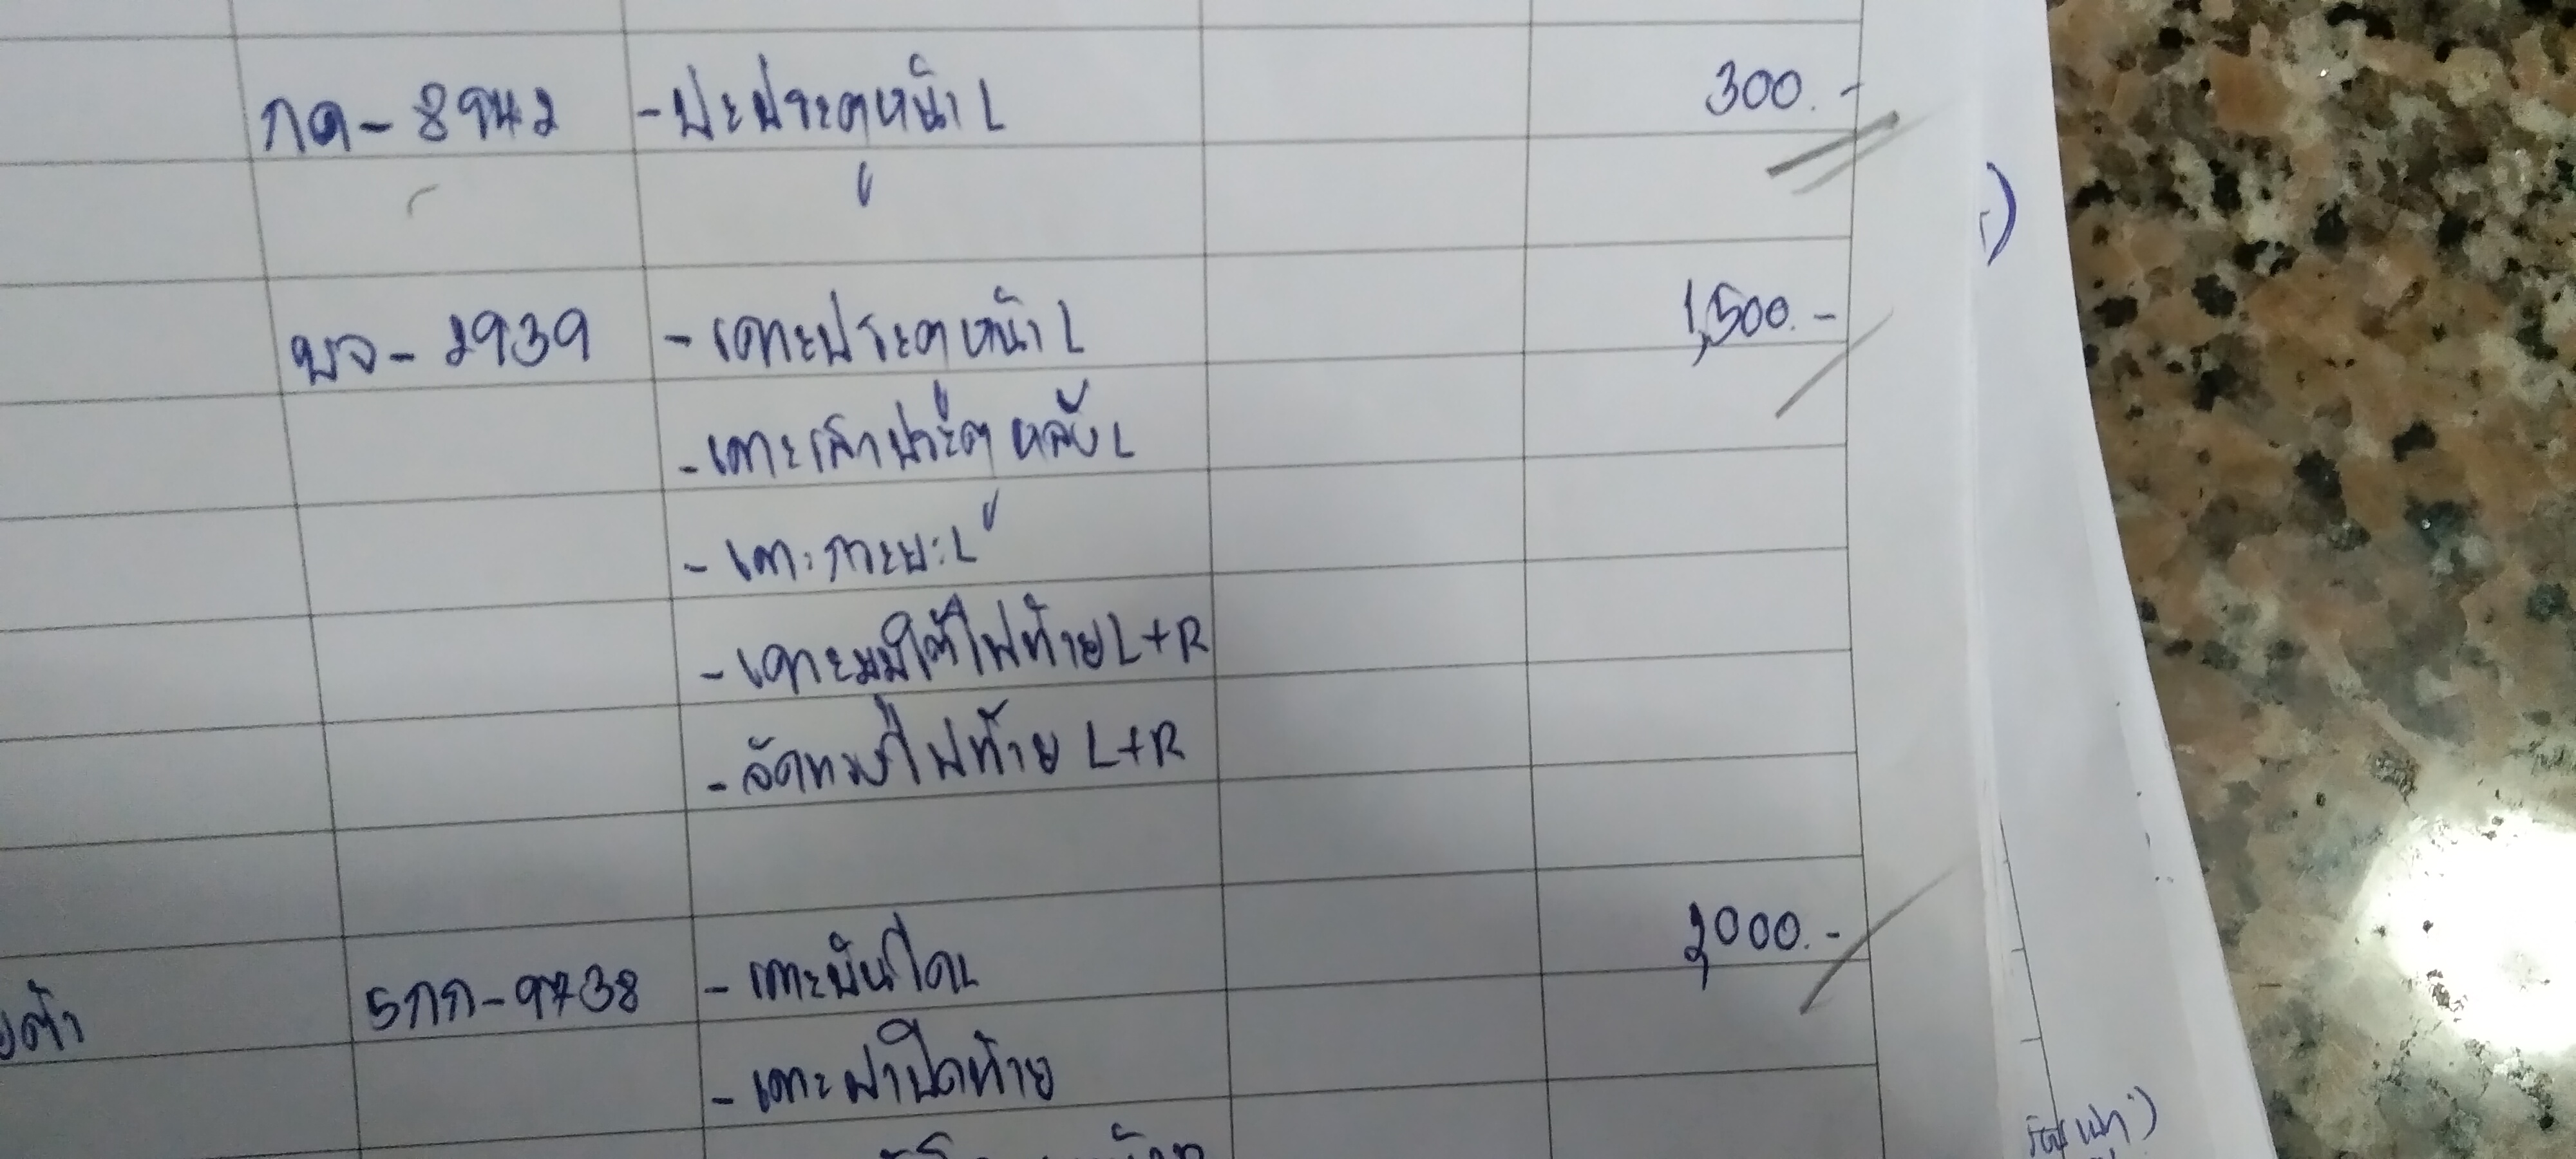 กค-8942 -ปะประตูหน้า L 300.-
พจ-2939 -เคาะประตูหน้า L 1,500.-
-เคาะเสาประตูหลัง L
-เคาะกระบะ L
-เคาะมุมใต้ไฟท้าย L+R
-จัดทรงไฟท้าย L+R
5กก-9738 -เคาะบันได L 2,000.-
-เคาะฝาปิดท้าย